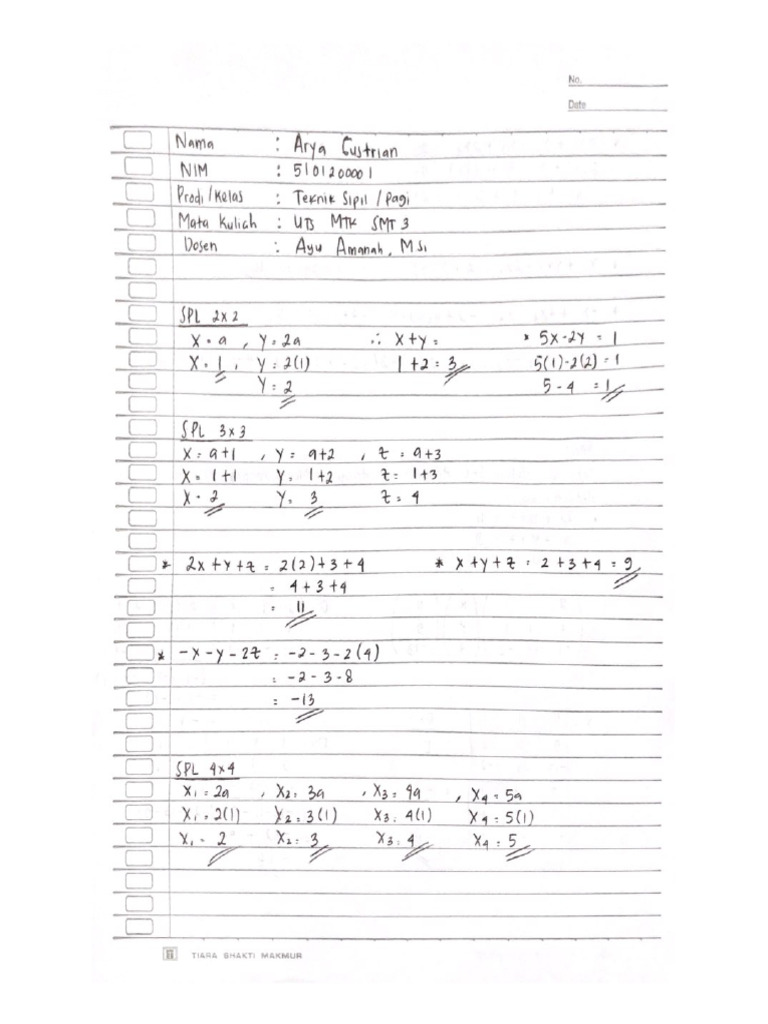 No.
Date
Nama : Arya Gustrian
NIM : 5101200001
Prodi/Kelas : Teknik Sipil / Pagi
Mata Kuliah : UTS MTK SMT 3
Dosen : Ayu Amanah, MSi
SPL 2x2
X = a , Y = 2a ∴ X+Y = * 5X-2Y = 1
X = 1 , Y = 2(1) 1+2 = 3 5(1)-2(2) = 1
Y = 2 5-4 = 1
SPL 3x3
X = a+1 , Y = a+2 , Z = a+3
X = 1+1 Y = 1+2 Z = 1+3
X = 2 Y = 3 Z = 4
* 2X+Y+Z = 2(2)+3+4 * X+Y+Z = 2+3+4 = 9
= 4+3+4
= 11
* -X-Y-2Z = -2-3-2(4)
= -2-3-8
= -13
SPL 4x4
X1 = 2a , X2 = 3a , X3 = 4a , X4 = 5a
X1 = 2(1) X2 = 3(1) X3 = 4(1) X4 = 5(1)
X1 = 2 X2 = 3 X3 = 4 X4 = 5
TIARA BHAKTI MAKMUR